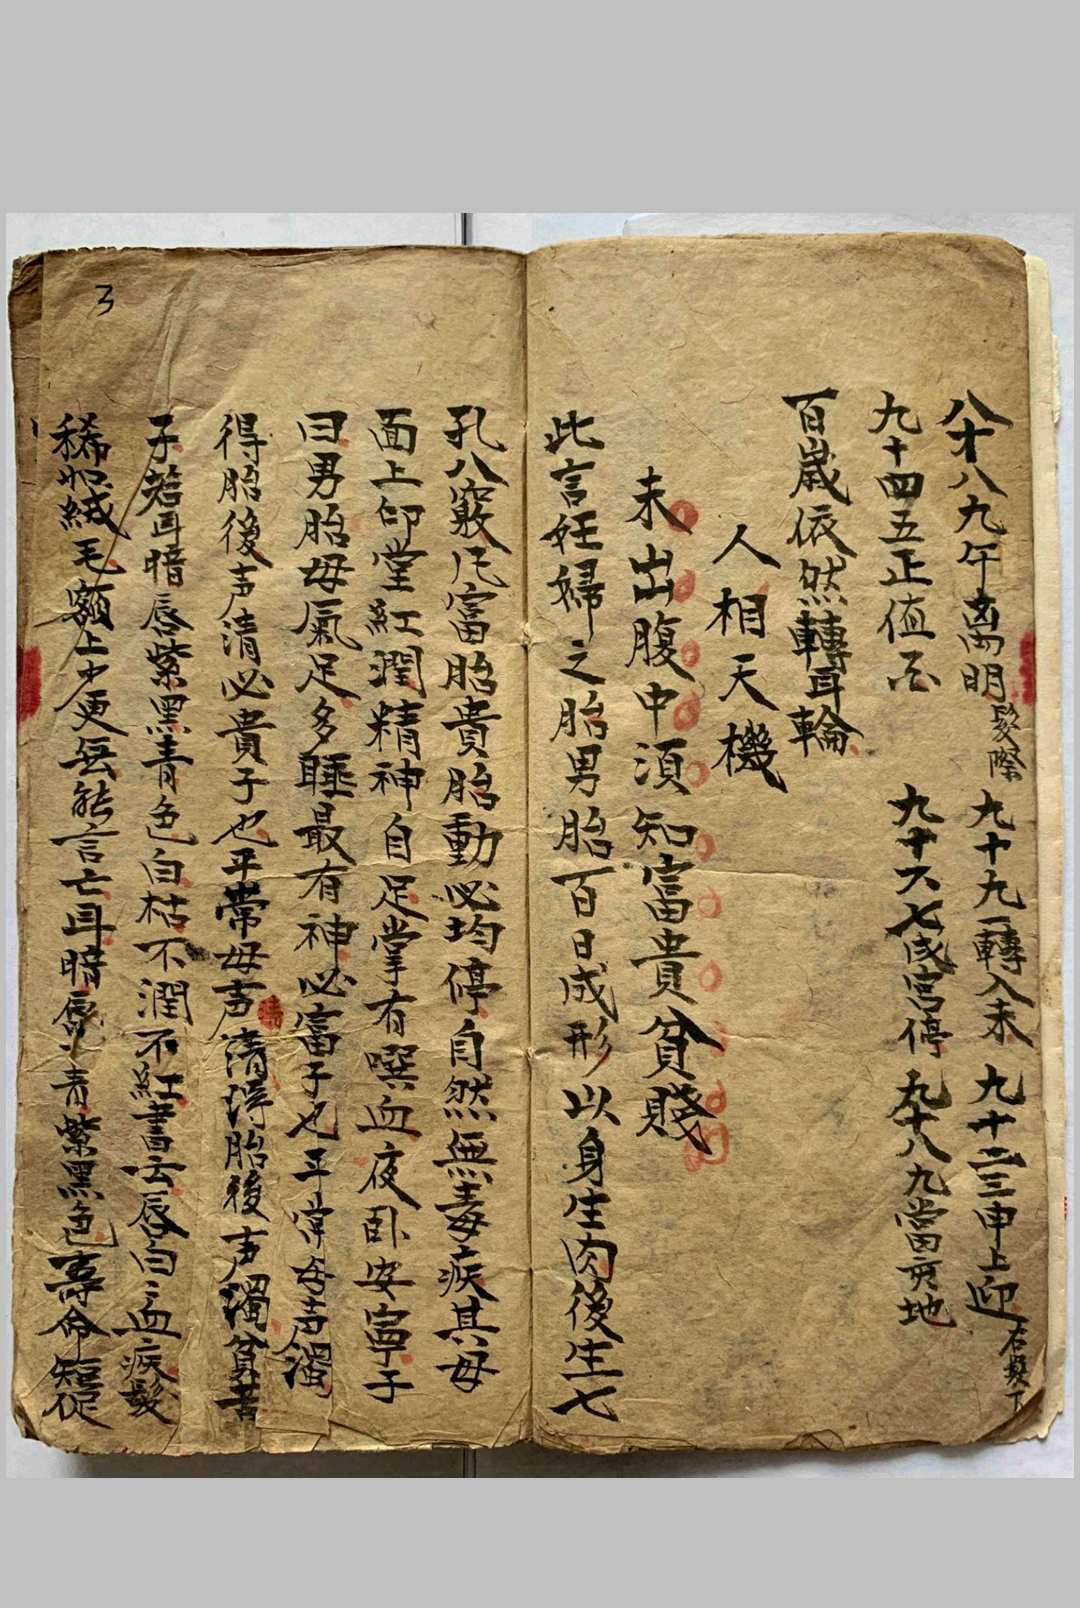 八十八九午离明 髮際 九十九一轉入未 九十二三申上迎 右鬂下
九十四五正值酉 九十六七戌宮停 九十八九當亥地
百歲依然轉耳輪
人相天機
未出腹中須知富貴貧賤
此言妊婦之胎男胎百日成形以身生肉後生七
孔八竅凡富胎貴胎動必均停自然無毒疾其母
面上印堂紅潤精神自足掌有噀血夜卧安寧子
曰男胎母氣足多睡最有神必富子也平常母声濁
得胎後声清必貴子也平常母声清得胎後声濁貧苦
子若耳暗唇紫黑青色白枯不潤不紅書云唇白亡血疾髮
稀如絨毛額上少更無能言亡耳暗唇青紫黑色壽命短促
3